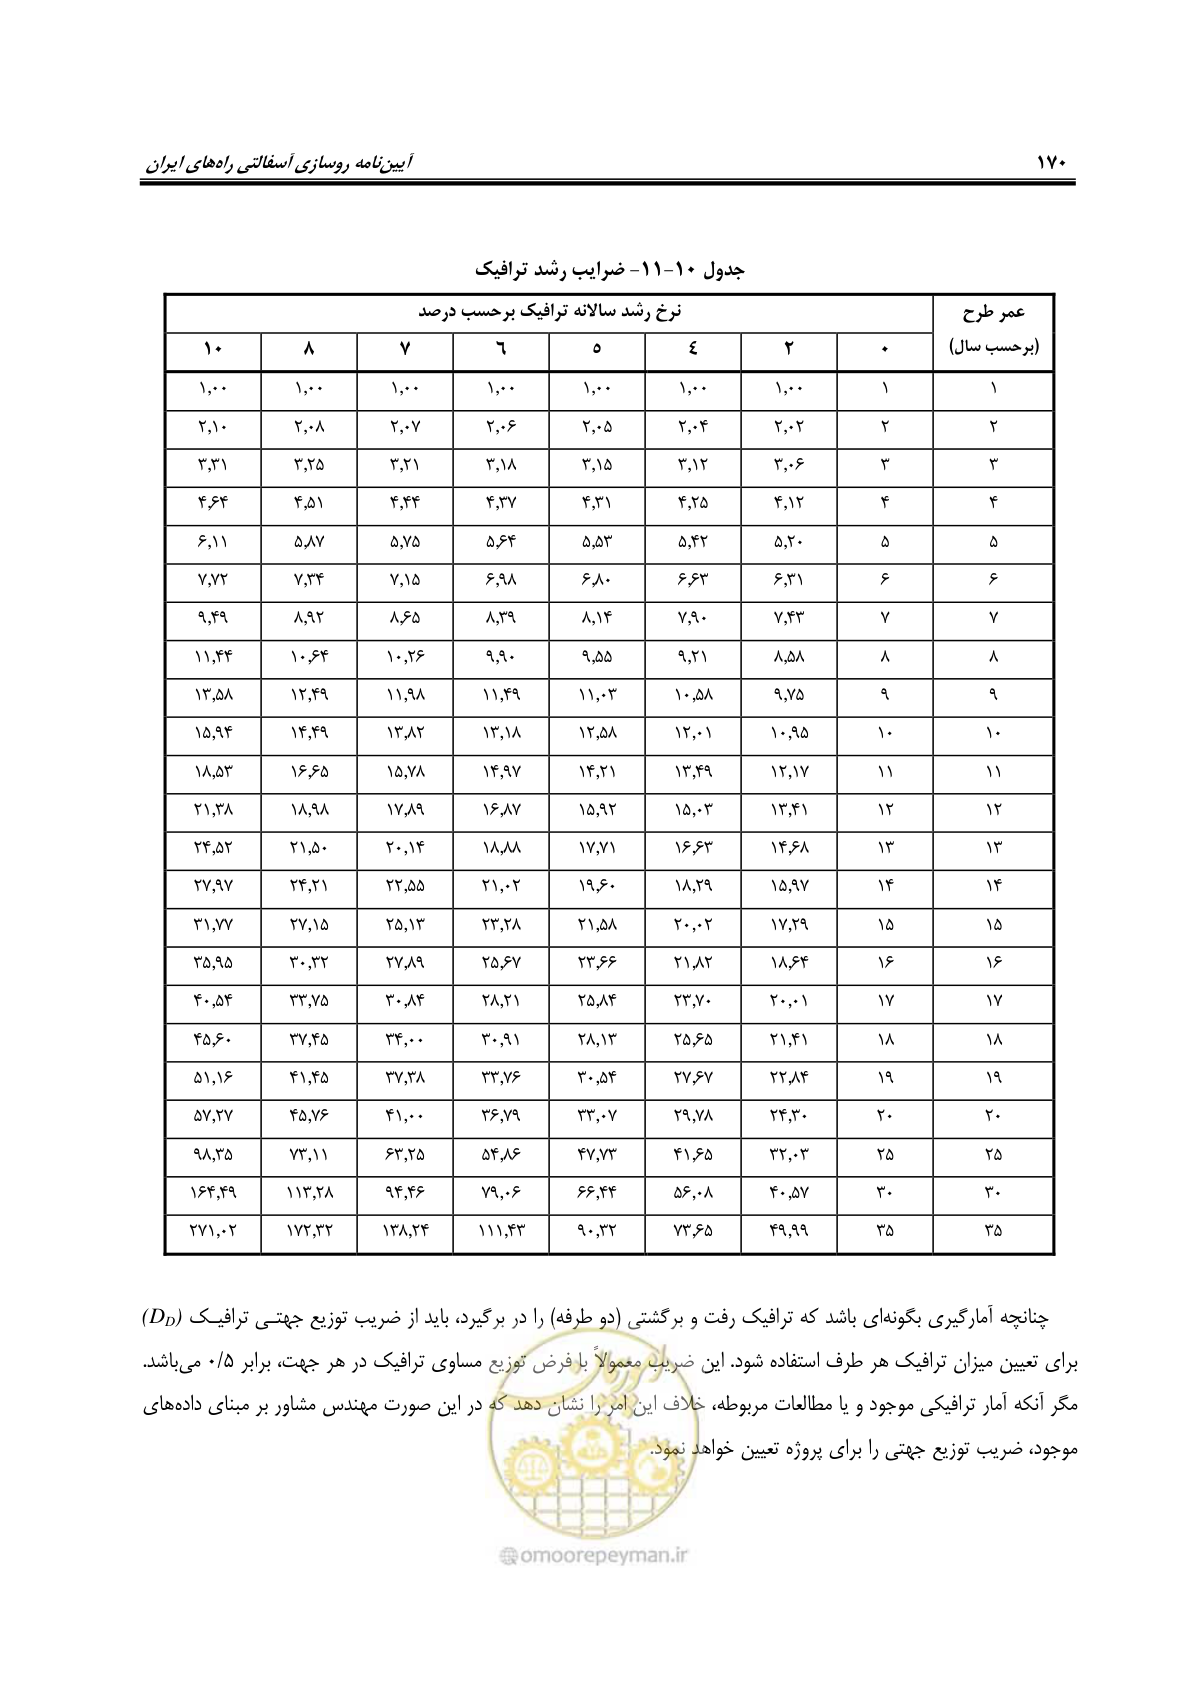 ۱۷۰ آیین‌نامه روسازی آسفالتی راه‌های ایران
جدول ۱۰-۱۱- ضرایب رشد ترافیک
عمر طرح نرخ رشد سالانه ترافیک برحسب درصد
(برحسب سال) ۰ ۲ ٤ ٥ ٦ ۷ ۸ ۱۰
۱ ۱ ۱,۰۰ ۱,۰۰ ۱,۰۰ ۱,۰۰ ۱,۰۰ ۱,۰۰ ۱,۰۰
۲ ۲ ۲,۰۲ ۲,۰۴ ۲,۰۵ ۲,۰۶ ۲,۰۷ ۲,۰۸ ۲,۱۰
۳ ۳ ۳,۰۶ ۳,۱۲ ۳,۱۵ ۳,۱۸ ۳,۲۱ ۳,۲۵ ۳,۳۱
۴ ۴ ۴,۱۲ ۴,۲۵ ۴,۳۱ ۴,۳۷ ۴,۴۴ ۴,۵۱ ۴,۶۴
۵ ۵ ۵,۲۰ ۵,۴۲ ۵,۵۳ ۵,۶۴ ۵,۷۵ ۵,۸۷ ۶,۱۱
۶ ۶ ۶,۳۱ ۶,۶۳ ۶,۸۰ ۶,۹۸ ۷,۱۵ ۷,۳۴ ۷,۷۲
۷ ۷ ۷,۴۳ ۷,۹۰ ۸,۱۴ ۸,۳۹ ۸,۶۵ ۸,۹۲ ۹,۴۹
۸ ۸ ۸,۵۸ ۹,۲۱ ۹,۵۵ ۹,۹۰ ۱۰,۲۶ ۱۰,۶۴ ۱۱,۴۴
۹ ۹ ۹,۷۵ ۱۰,۵۸ ۱۱,۰۳ ۱۱,۴۹ ۱۱,۹۸ ۱۲,۴۹ ۱۳,۵۸
۱۰ ۱۰ ۱۰,۹۵ ۱۲,۰۱ ۱۲,۵۸ ۱۳,۱۸ ۱۳,۸۲ ۱۴,۴۹ ۱۵,۹۴
۱۱ ۱۱ ۱۲,۱۷ ۱۳,۴۹ ۱۴,۲۱ ۱۴,۹۷ ۱۵,۷۸ ۱۶,۶۵ ۱۸,۵۳
۱۲ ۱۲ ۱۳,۴۱ ۱۵,۰۳ ۱۵,۹۲ ۱۶,۸۷ ۱۷,۸۹ ۱۸,۹۸ ۲۱,۳۸
۱۳ ۱۳ ۱۴,۶۸ ۱۶,۶۳ ۱۷,۷۱ ۱۸,۸۸ ۲۰,۱۴ ۲۱,۵۰ ۲۴,۵۲
۱۴ ۱۴ ۱۵,۹۷ ۱۸,۲۹ ۱۹,۶۰ ۲۱,۰۲ ۲۲,۵۵ ۲۴,۲۱ ۲۷,۹۷
۱۵ ۱۵ ۱۷,۲۹ ۲۰,۰۲ ۲۱,۵۸ ۲۳,۲۸ ۲۵,۱۳ ۲۷,۱۵ ۳۱,۷۷
۱۶ ۱۶ ۱۸,۶۴ ۲۱,۸۲ ۲۳,۶۶ ۲۵,۶۷ ۲۷,۸۹ ۳۰,۳۲ ۳۵,۹۵
۱۷ ۱۷ ۲۰,۰۱ ۲۳,۷۰ ۲۵,۸۴ ۲۸,۲۱ ۳۰,۸۴ ۳۳,۷۵ ۴۰,۵۴
۱۸ ۱۸ ۲۱,۴۱ ۲۵,۶۵ ۲۸,۱۳ ۳۰,۹۱ ۳۴,۰۰ ۳۷,۴۵ ۴۵,۶۰
۱۹ ۱۹ ۲۲,۸۴ ۲۷,۶۷ ۳۰,۵۴ ۳۳,۷۶ ۳۷,۳۸ ۴۱,۴۵ ۵۱,۱۶
۲۰ ۲۰ ۲۴,۳۰ ۲۹,۷۸ ۳۳,۰۷ ۳۶,۷۹ ۴۱,۰۰ ۴۵,۷۶ ۵۷,۲۷
۲۵ ۲۵ ۳۲,۰۳ ۴۱,۶۵ ۴۷,۷۳ ۵۴,۸۶ ۶۳,۲۵ ۷۳,۱۱ ۹۸,۳۵
۳۰ ۳۰ ۴۰,۵۷ ۵۶,۰۸ ۶۶,۴۴ ۷۹,۰۶ ۹۴,۴۶ ۱۱۳,۲۸ ۱۶۴,۴۹
۳۵ ۳۵ ۴۹,۹۹ ۷۳,۶۵ ۹۰,۳۲ ۱۱۱,۴۳ ۱۳۸,۲۴ ۱۷۲,۳۲ ۲۷۱,۰۲
چنانچه آمارگیری بگونه‌ای باشد که ترافیک رفت و برگشتی (دو طرفه) را در برگیرد، باید از ضریب توزیع جهتـی ترافیـک (D_D)
برای تعیین میزان ترافیک هر طرف استفاده شود. این ضریب معمولاً با فرض توزیع مساوی ترافیک در هر جهت، برابر ۰/۵ می‌باشد.
مگر آنکه آمار ترافیکی موجود و یا مطالعات مربوطه، خلاف این امر را نشان دهد که در این صورت مهندس مشاور بر مبنای داده‌های
موجود، ضریب توزیع جهتی را برای پروژه تعیین خواهد نمود.
امور پیمان
@omoorepeyman.ir